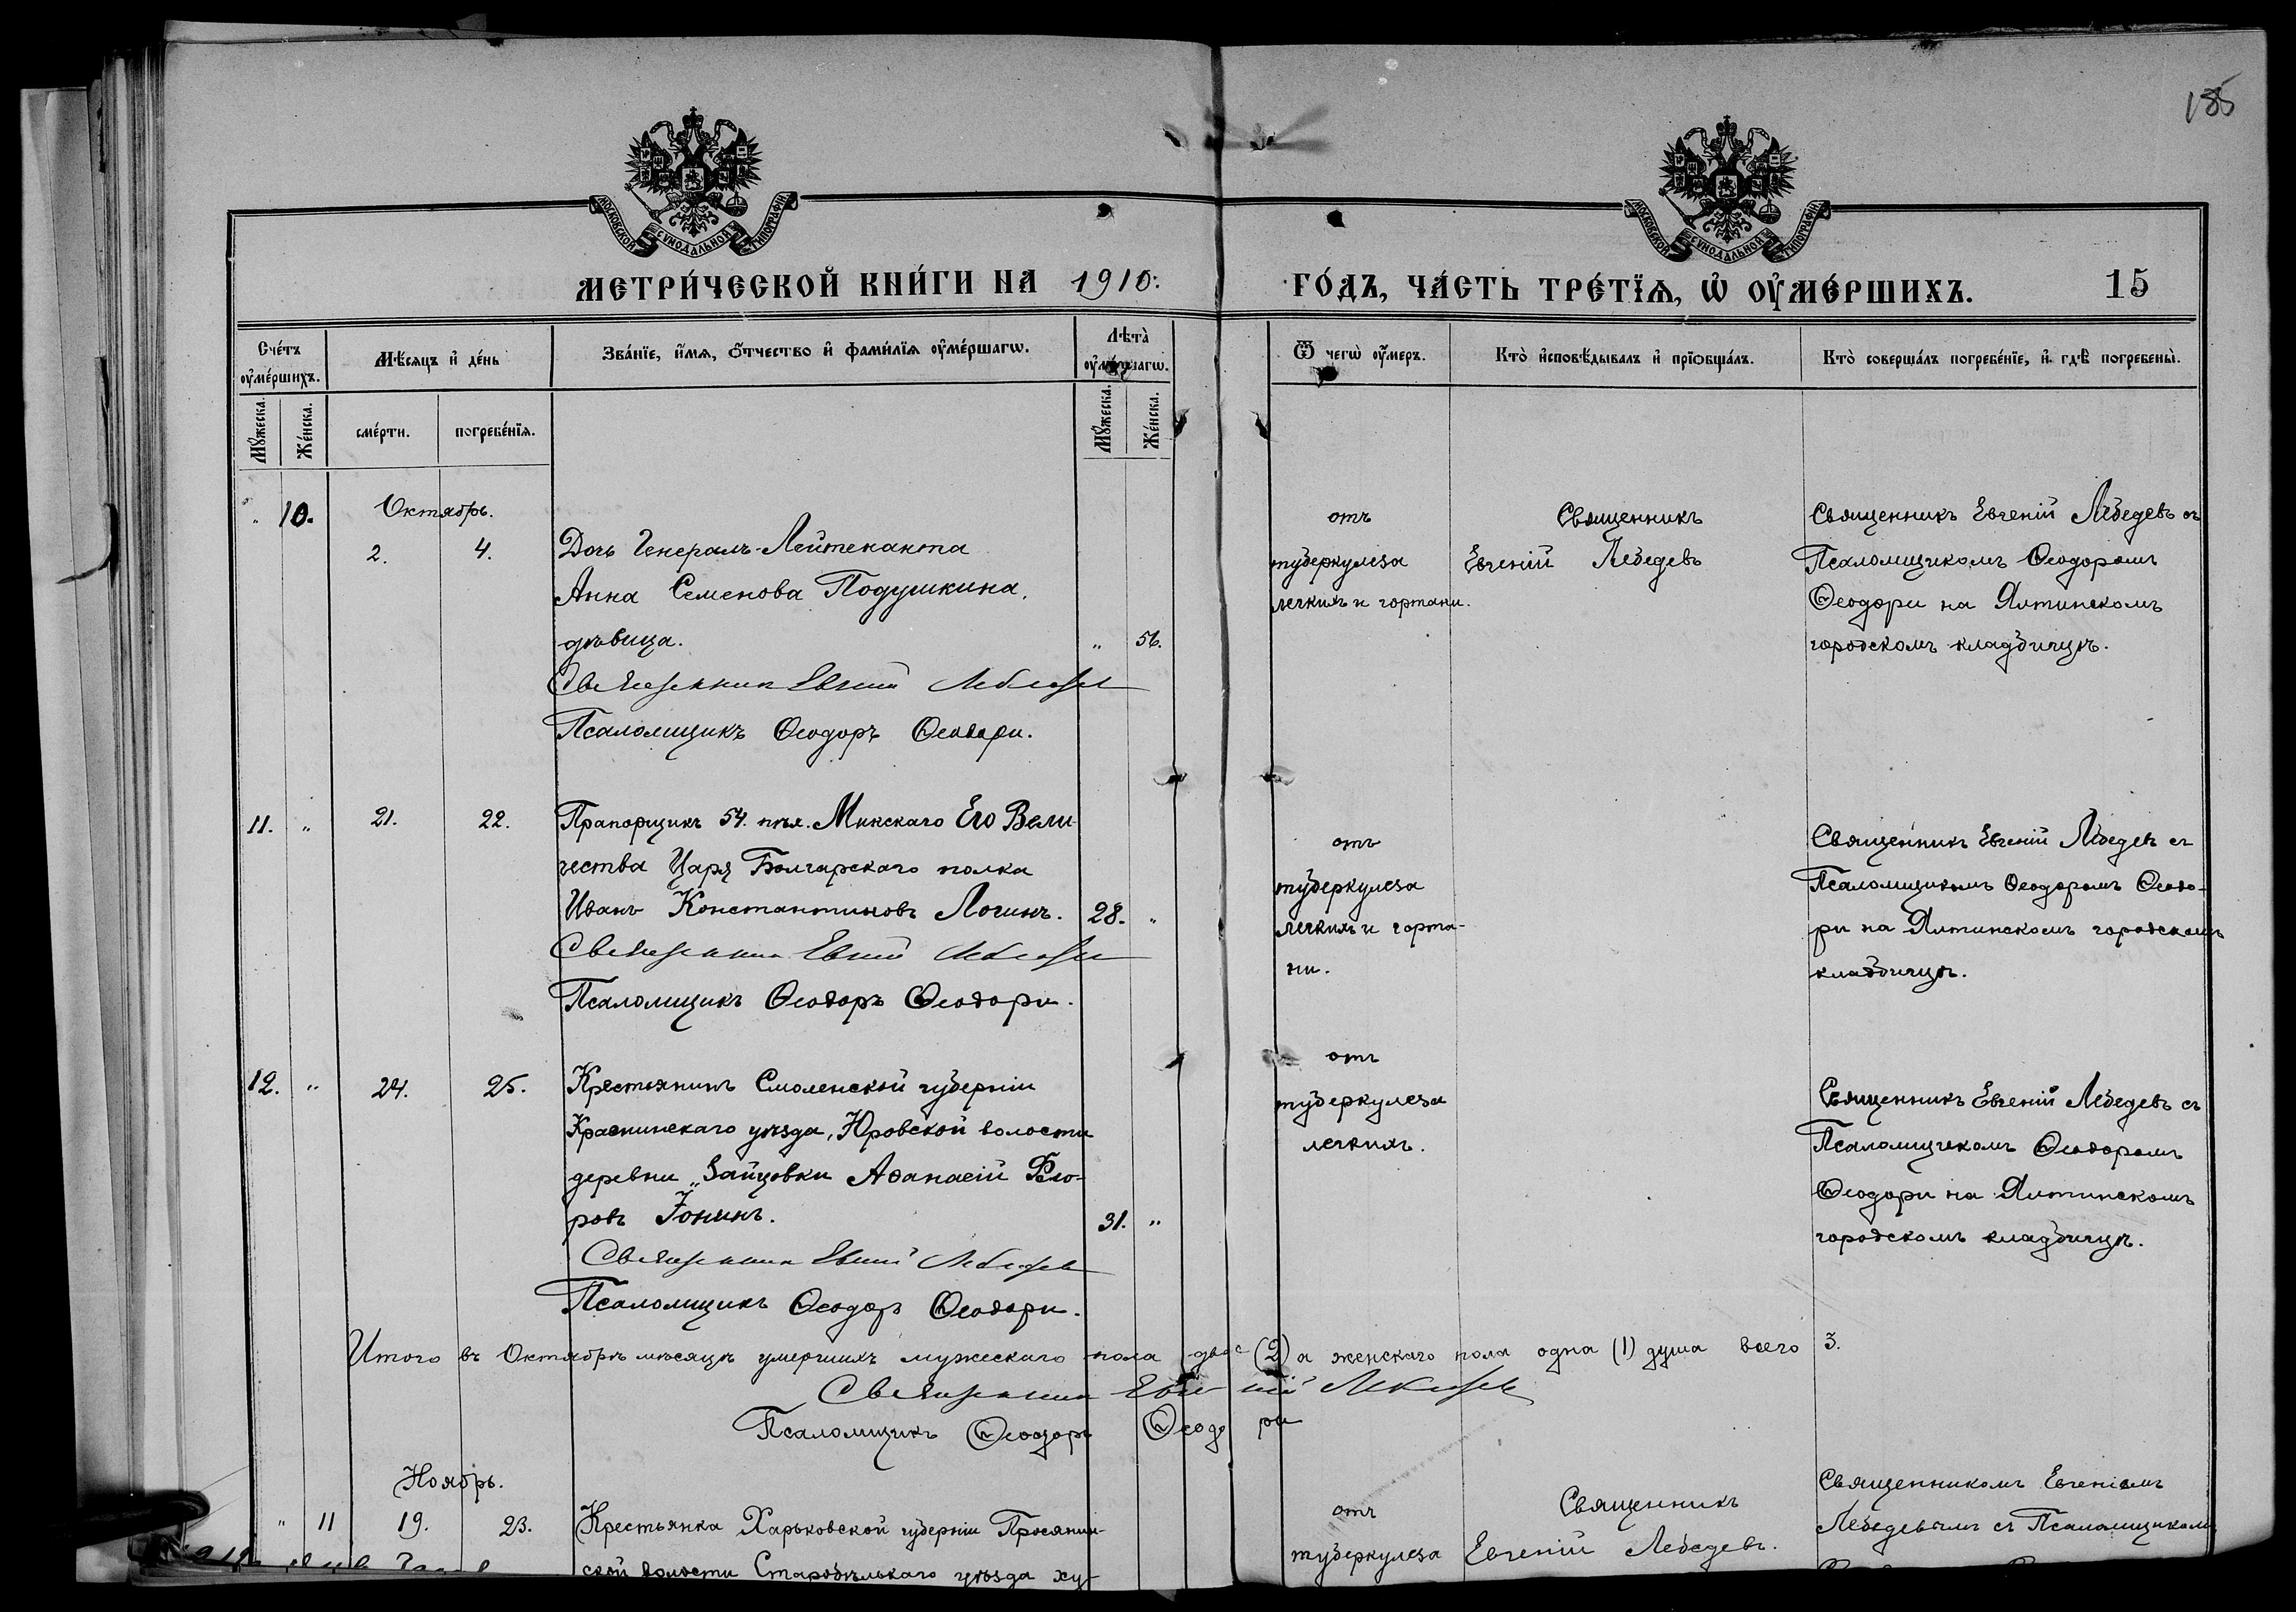 185
МОСКОВСКОЙ СѴНОДАЛЬНОЙ ТИПОГРАФІИ
МОСКОВСКОЙ СѴНОДАЛЬНОЙ ТИПОГРАФІИ
МЕТРИ́ЧЕСКОЙ КНИ́ГИ НА 1910: ГО́ДЪ, ЧА́СТЬ ТРЕ́ТЇѦ, Ѡ҆ ОУ҆МЕ́РШИХЪ. 15
Сче́тъ оу҆ме́ршихъ.
Мѣ́сѧцъ и҆ де́нь
Зва́нїе, и҆́мѧ, ѻ҆́тчество и҆ фами́лїѧ оу҆ме́ршагѡ.
Лѣ́та̀ оу҆ме́ршагѡ.
Ѿ чегѡ̀ оу҆́меръ.
Кто̀ и҆сповѣ́дывалъ и҆ прїѡбща́лъ.
Кто̀ соверша́лъ погребе́нїе, и҆ гдѣ̀ погребены̀.
Мꙋ́жеска.
Же́нска.
сме́рти.
погребе́нїѧ.
Мꙋ́жеска.
Же́нска.
" 10.
Октябрь.
2. 4.
Дочь Генералъ-Лейтенанта
Анна Семенова Подушкина,
дѣвица. " 56.
Священникъ Евгеній Лебедевъ
Псаломщикъ Ѳеодоръ Ѳеодори.
отъ
туберкулеза
легкихъ и гортани.
Священникъ
Евгеній Лебедевъ
Священникъ Евгеній Лебедевъ съ
Псаломщикомъ Ѳеодоромъ
Ѳеодори на Ялтинскомъ
городскомъ кладбищѣ.
11. " 21. 22.
Прапорщикъ 54. пѣх. Минскаго Его Вели-
чества Царя Болгарскаго полка
Иванъ Константиновъ Логинъ. 28. "
Священникъ Евгеній Лебедевъ
Псаломщикъ Ѳеодоръ Ѳеодори.
отъ
туберкулеза
легкихъ и горта-
ни.
Священникъ Евгеній Лебедевъ съ
Псаломщикомъ Ѳеодоромъ Ѳеодо-
ри на Ялтинскомъ городскомъ
кладбищѣ.
12. " 24. 25.
Крестьянинъ Смоленской губерніи
Краснинскаго уѣзда, Юровской волости
деревни „Зайцовки Аѳанасій Ѳео-
ровъ Іонинъ. 31. "
Священникъ Евгеній Лебедевъ
Псаломщикъ Ѳеодоръ Ѳеодори.
отъ
туберкулеза
легкихъ.
Священникъ Евгеній Лебедевъ съ
Псаломщикомъ Ѳеодоромъ
Ѳеодори на Ялтинскомъ
городскомъ кладбищѣ.
Итого въ Октябрѣ мѣсяцѣ умершихъ мужескаго пола двое (2) а женскаго пола одна (1) душа всего 3.
Священникъ Евгеній Лебедевъ
Псаломщикъ Ѳеодоръ Ѳеодори
Ноябрь.
" 11 19. 23.
Крестьянка Харьковской губерніи Просянин-
ской волости Старобѣльскаго уѣзда ху-
отъ
туберкулеза
Священникъ
Евгеній Лебедевъ.
Священникомъ Евгеніемъ
Лебедевымъ съ Псаломщикомъ